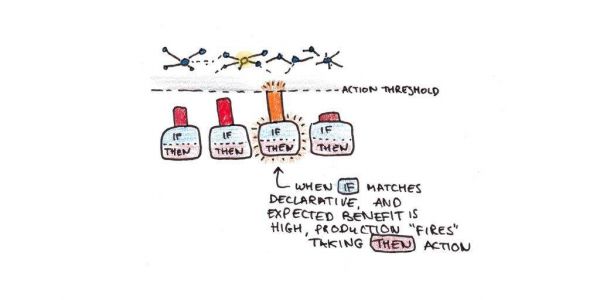 ACTION THRESHOLD
IF
THEN
IF
THEN
IF
THEN
IF
THEN
WHEN IF MATCHES
DECLARATIVE, AND
EXPECTED BENEFIT IS
HIGH, PRODUCTION "FIRES"
TAKING THEN ACTION